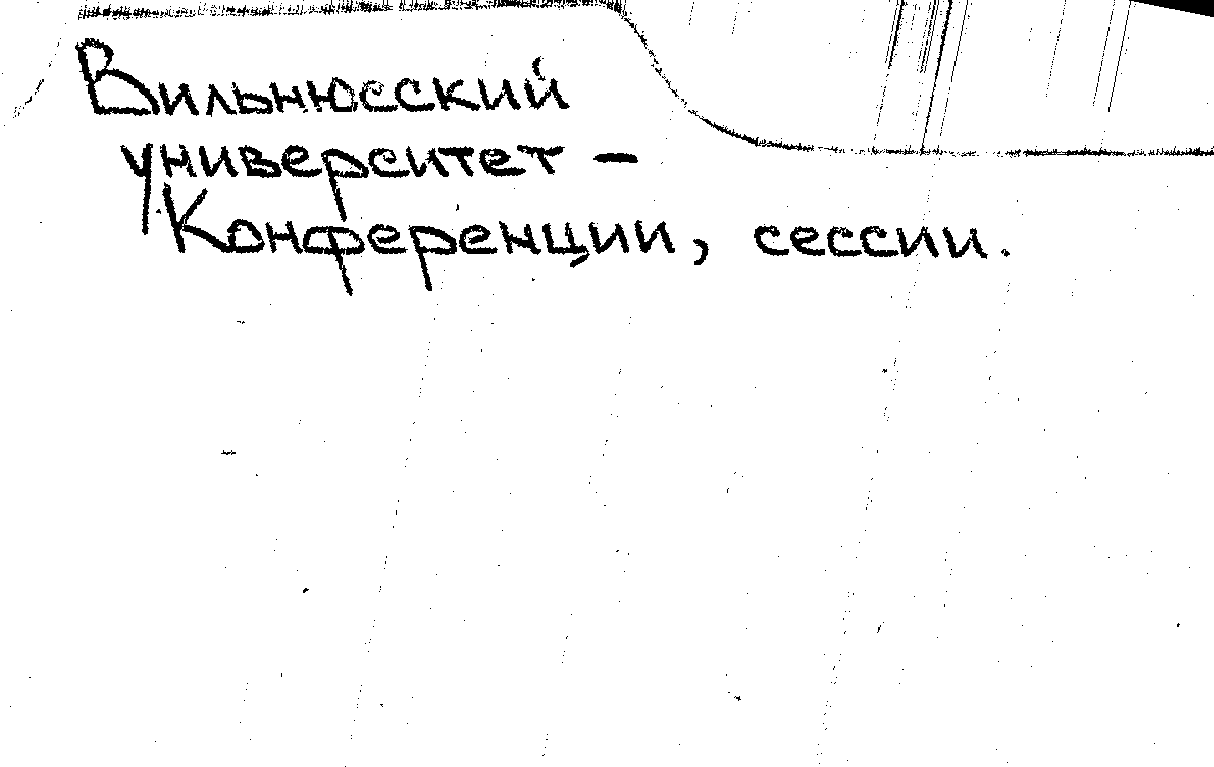 Вильнюсский
университет –
Конференции, сессии.